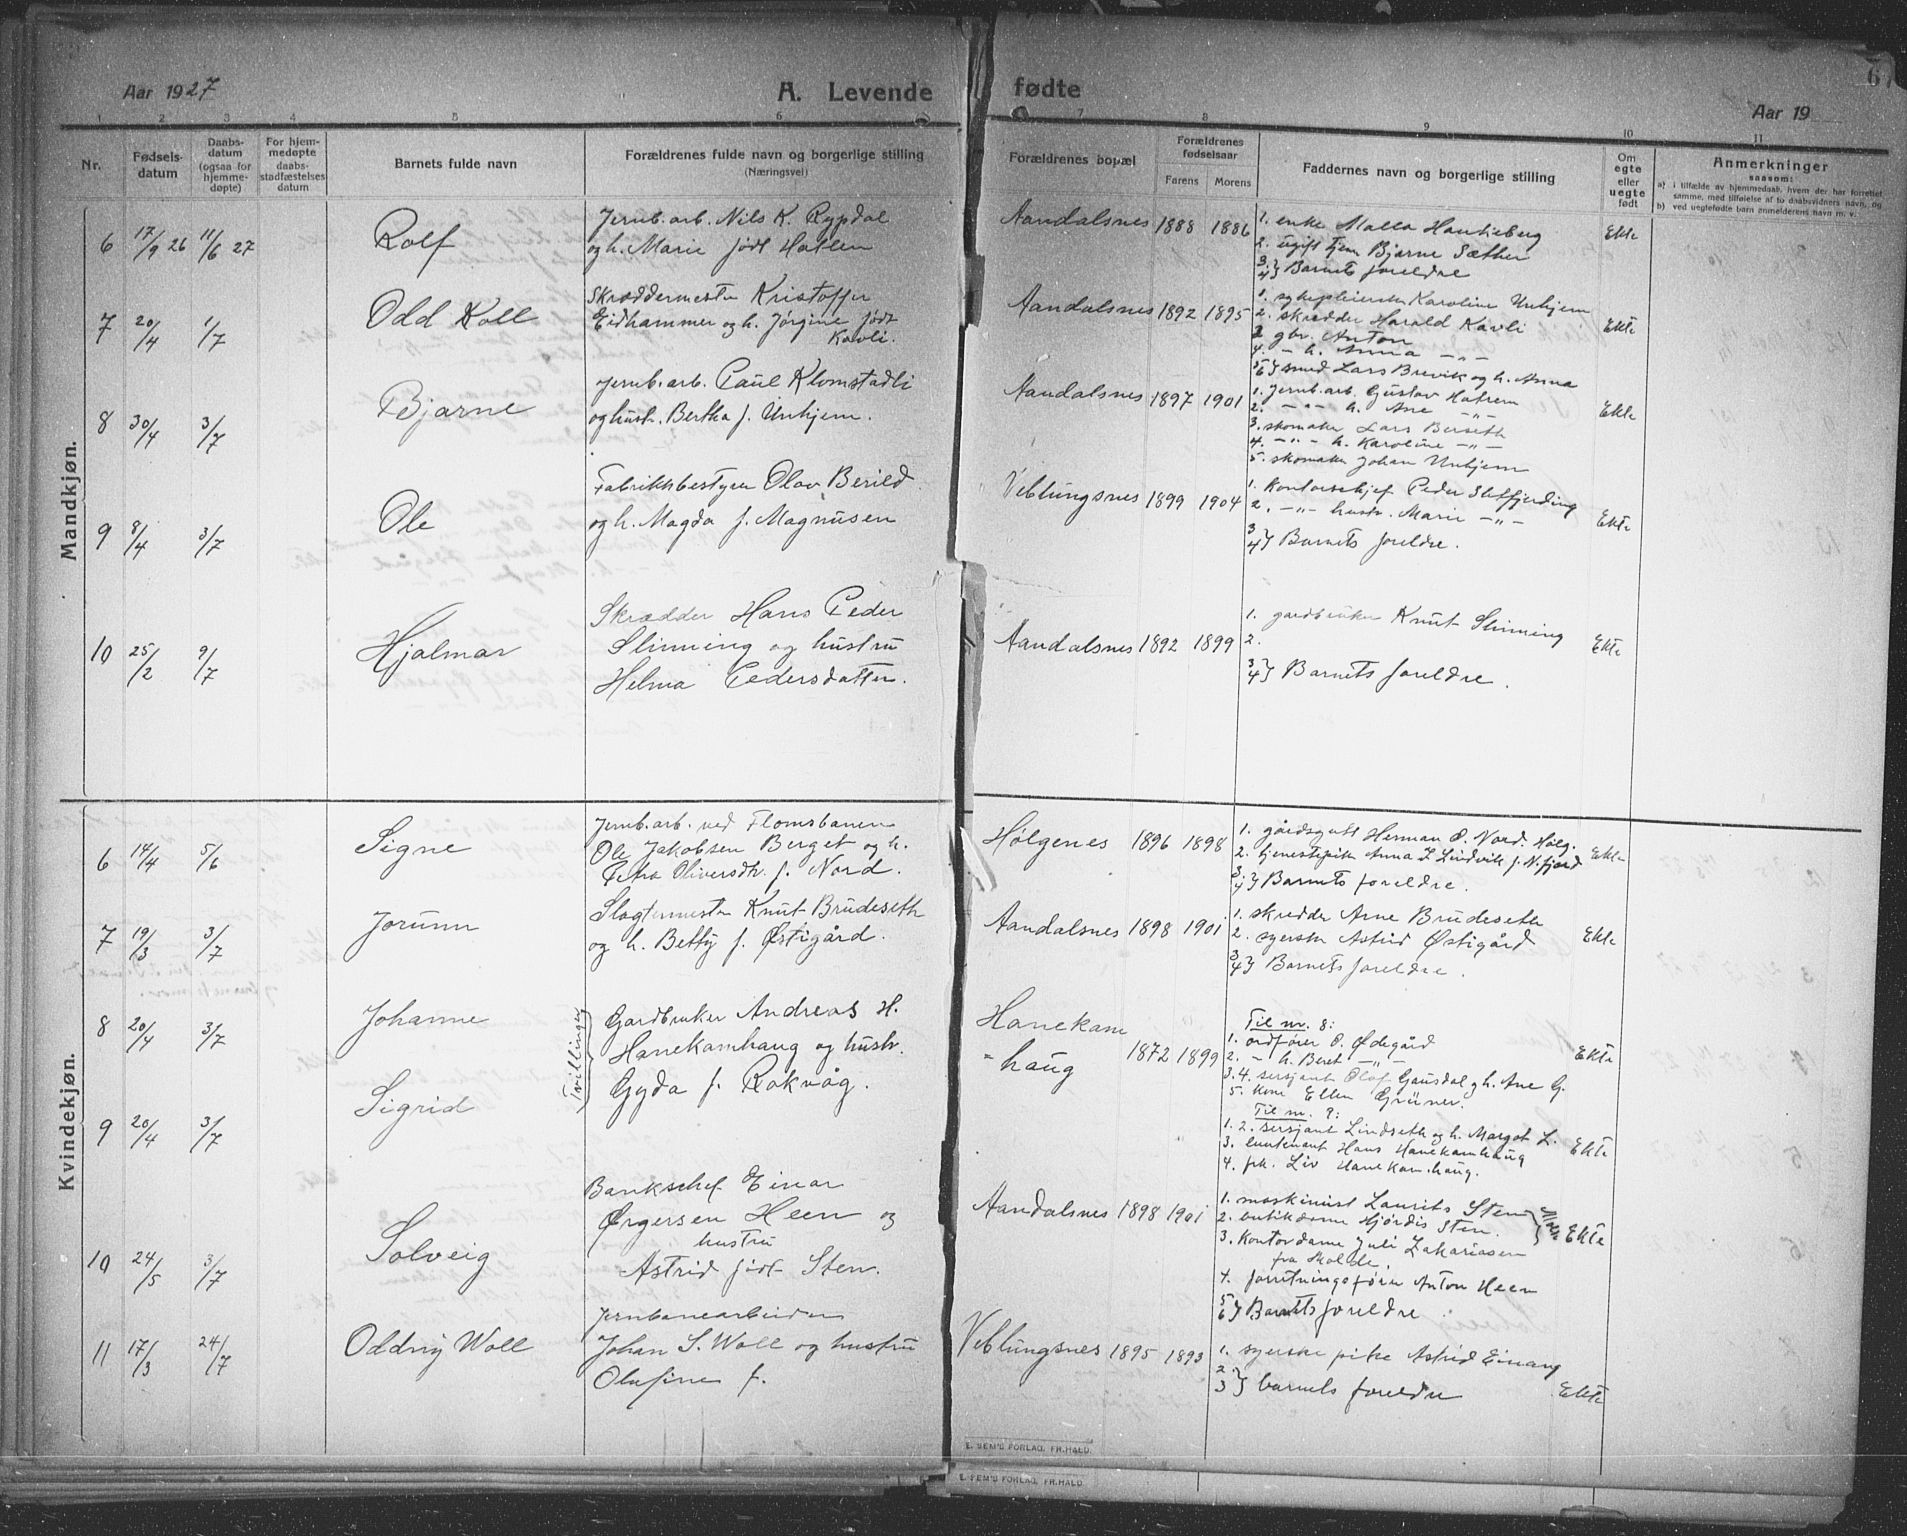 Aar 1927
A. Levende fødte
Aar 19
67
1 2 3 4 5 6 7 8 9 10 11
Nr.
Fødsels-datum
Daabs-datum (ogsaa for hjemme-døpte)
For hjem-medøpte daabs-stadfæstelses datum
Barnets fulde navn
Forældrenes fulde navn og borgerlige stilling
(Næringsvei)
Forældrenes bopæl
Forældrenes fødselsaar
Farens Morens
Faddernes navn og borgerlige stilling
Om egte eller uegte født
Anmerkninger
saasom:
a) i tilfælde av hjemmedaab, hvem der har forrettet samme, med tilføielse af to daabsvidners navn, og
b) ved uegtefødte barn anmelderens navn m. v.
Mandkjøn.
6 17/9 26 11/6 27 Rolf
Jernb.arb. Nils K. Rypdal
og h. Marie født Hatlen
Aandalsnes 1888 1886
1. enke Malla Haukeberg
2. ugift tjen Bjarne Sæther
3. 4} Barnets foreldre
Ekte
7 20/4 1/7 Odd Koll
Skræddermester Kristoffer
Eidhammer og h. Jørgine født
Kavli.
Aandalsnes 1892 1895
1. sykepleierske Karoline Unhjem
2. skredder Harald Kavli
3 gbr. Anton
4. - h. Anna - " -
5 6} smed Lars Brevik og h. Anna
Ekte
8 30/4 3/7 Bjarne
Jernb.arb. Paul Klomstadli
og hustr. Bertha f. Unhjem.
Aandalsnes 1897 1901
1. Jernb.arb. Gustav Hatrem
2. - " - h. Ane - " -
3. skomaker Lars Berseth
4. - " - h. Karoline - " -
5. skomaker Johan Unhjem
Ekte
9 8/4 3/7 Ole
Fabrikkbestyrer Olav Berild
og h. Magda f. Magnusen
Veblungsnes 1899 1904
1. Kontorchef Peder
2. - " - hustr. Marie - " -
3 4} Barnets foreldre.
Ekte
10 25/2 9/7 Hjalmar
Skrædder Hans Peder
Slinning og hustru
Helma Pedersdatter.
Aandalsnes 1892 1899
1. gardbruker Knut Slinning
2.
3 4} Barnets foreldre.
Ekte
Kvindekjøn.
6 14/4 5/6 Signe
Jernb.arb. ved Flomsbanen
Ole Jakobsen Berget og h.
Petra Oliversdtr. f. Nord.
Hølgenes 1896 1898
1. gårdsgutt Herman O. Nord. Hølg.
2. tjenestepike Anna I. Lindvik f. N.fjord
3. 4} Barnets foreldre.
Ekte
7 19/3 3/7 Jorunn
Slagtermester Knut Brudeseth
og h. Betty f. Østigård.
Aandalsnes 1898 1901
1. skredder Arne Brudeseth
2. syerske Astrid Østigård
3 4} Barnets foreldre.
Ekte
8 20/4 3/7 Johanne
Tvillinger
Gardbruker Andreas H.
Hanekamhaug og hustr.
Gyda f. Rokvåg.
Hanekam
-haug 1872 1899
Til nr. 8:
1. ordfører O. Ødegård
2. - h. Beret - " -
3. 4. sersjant Olaf Gausdal og h. Ane G.
5. Kone Ellen Grüner.
Ekte
9 20/4 3/7 Sigrid
Til nr. 9:
1. 2. sersjant Lindseth og h. Margot L.
3. løutenant Hans Hanekamhaug
4. frk. Liv Hanekamhaug.
Ekte
10 24/5 3/7 Solveig
Bankschef Einar
Ørgersen Heen og
hustru
Astrid født Sten.
Aandalsnes 1898 1901
1. maskinist Laurits Sten
2. butikdame Hjørdis Sten.
3. Kontordame Juli Zakariasen
fra Molde.
4. forretningsfører Anton Heen
5 6} Barnets foreldre.
Ekte
11 17/3 24/7 Oddny Woll
Jernbanearbeider
Johan S. Woll og hustru
Olufine f.
Veblungsnes 1895 1893
1. syerske pike Astrid Einang
2. 3} barnets foreldre
Ekte
E. SEM'S FORLAG. FR.HALD.
E. SEM'S FORLAG. FR.HALD.